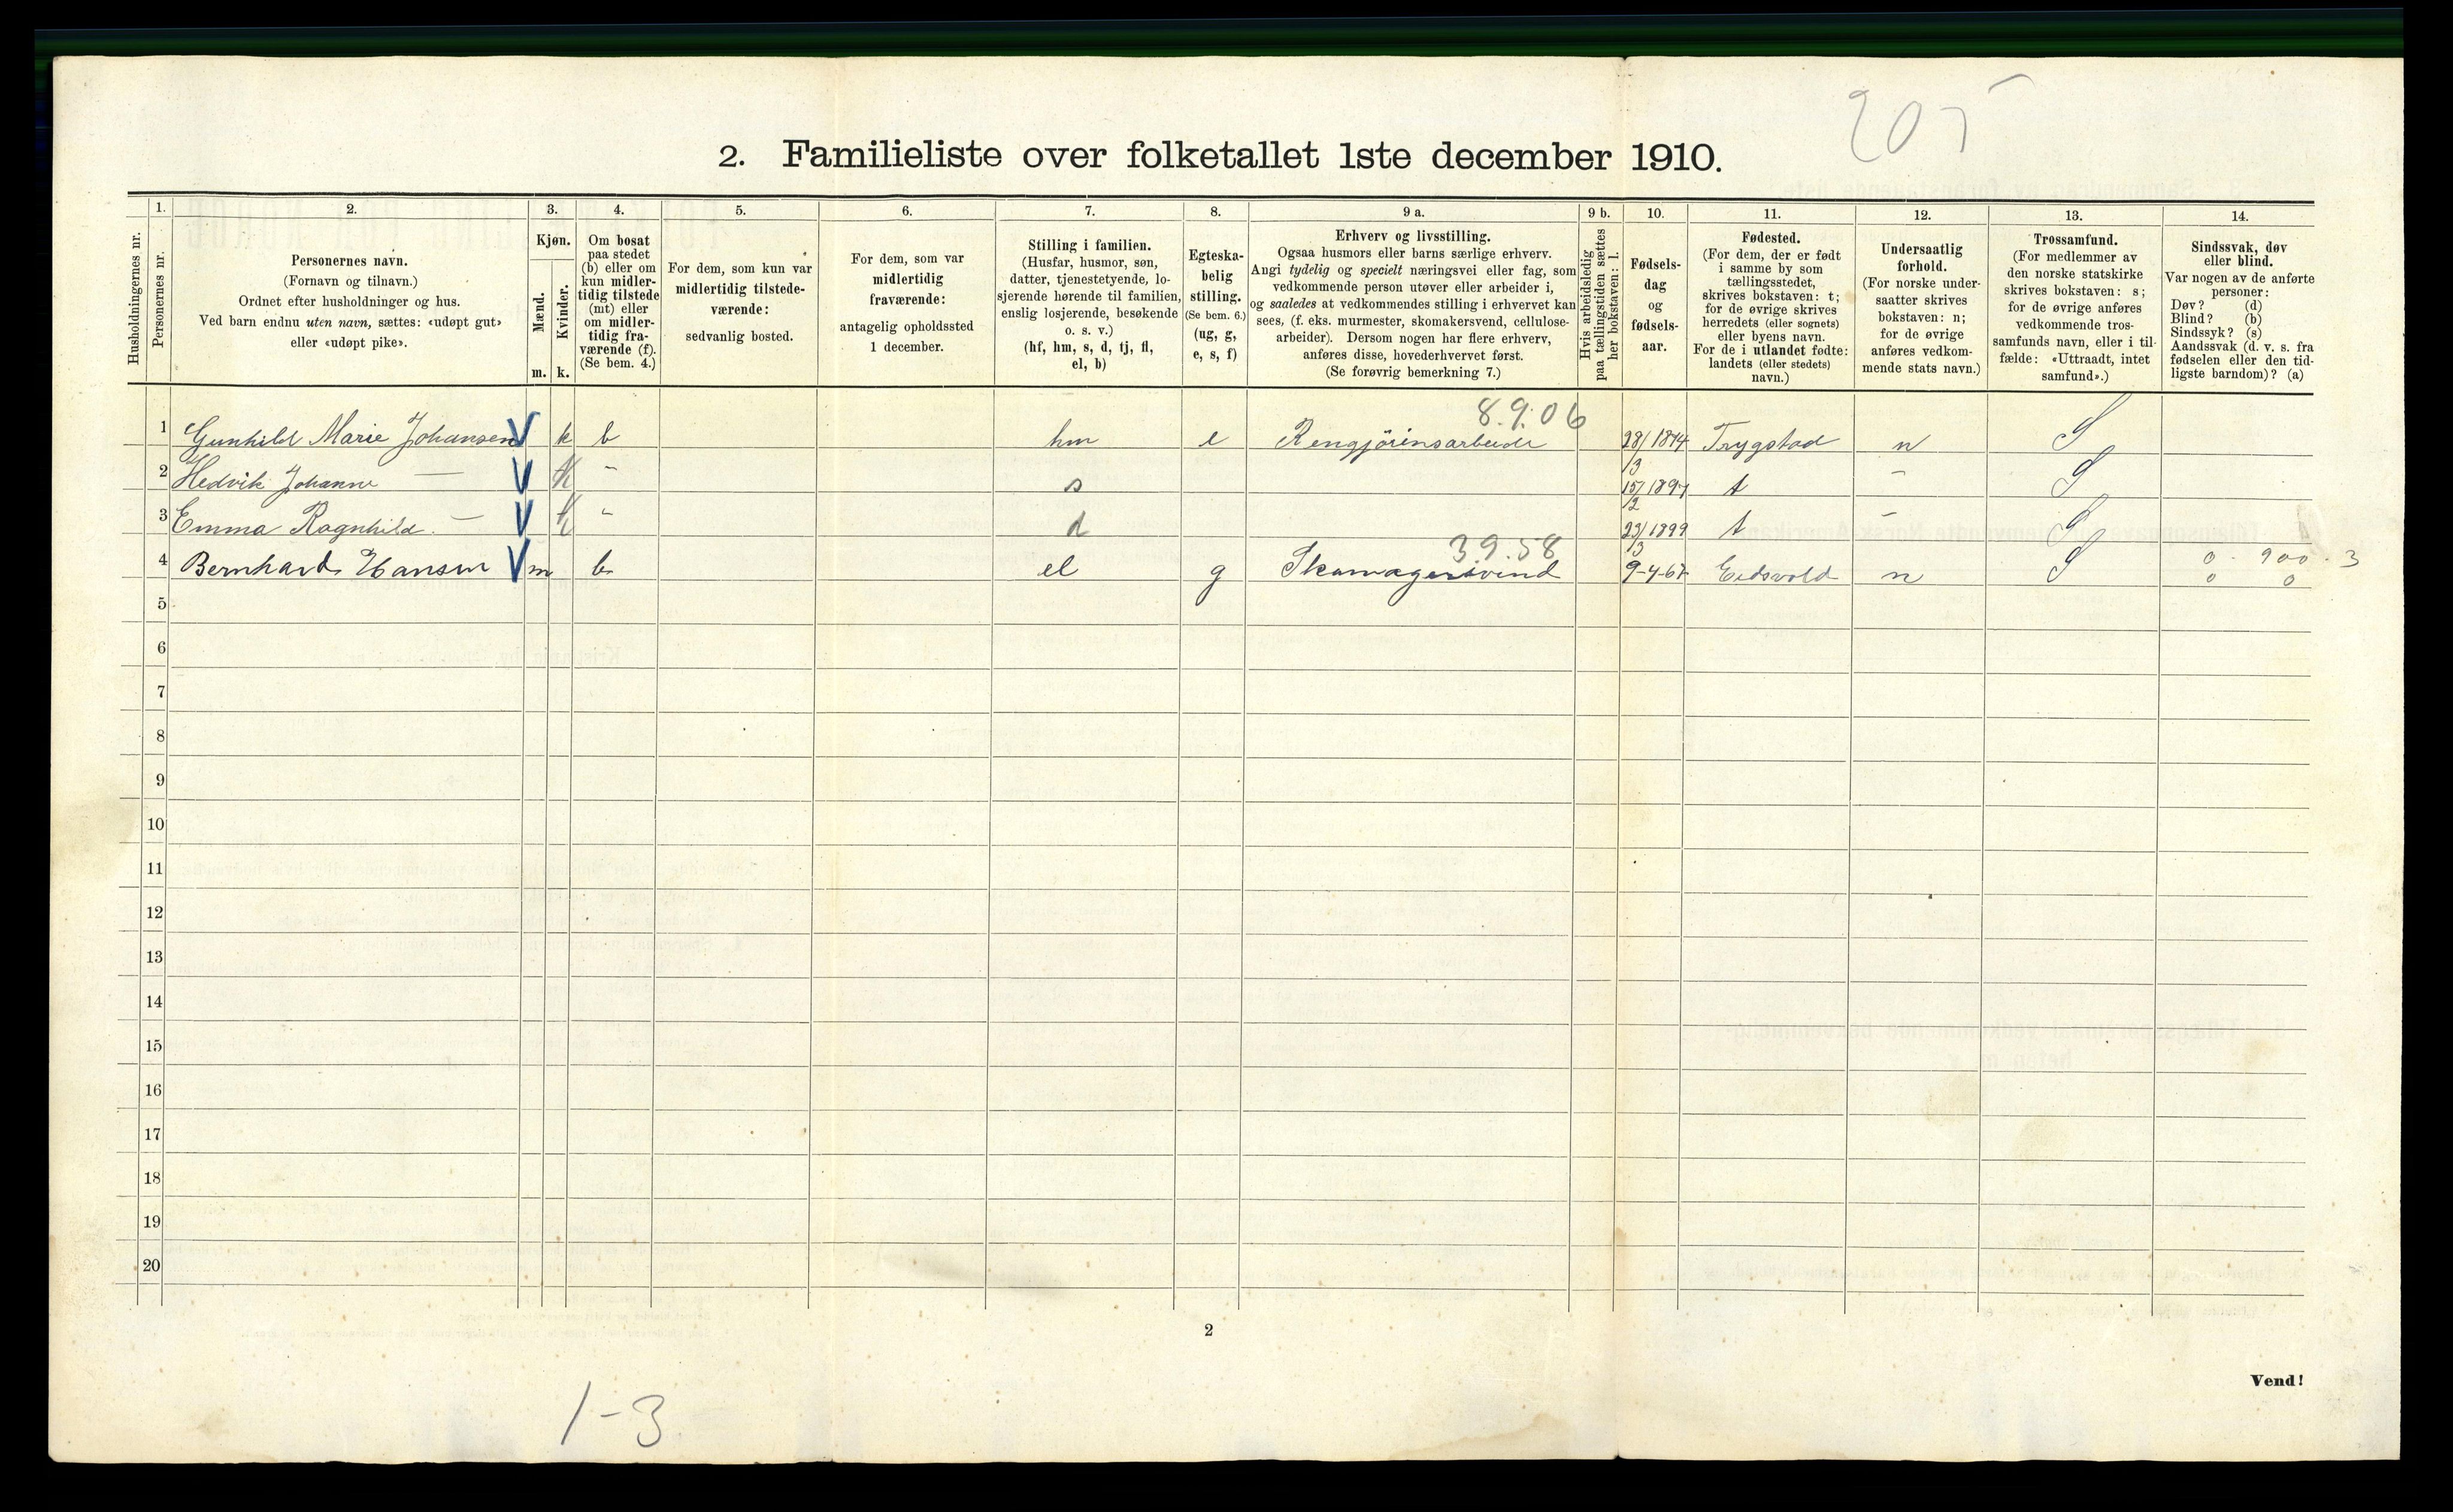 205
2. Familieliste over folketallet 1ste december 1910.
Husholdningernes nr.
1.
Personernes nr.
2.
Personernes navn.
(Fornavn og tilnavn.)
Ordnet efter husholdninger og hus.
Ved barn endnu uten navn, sættes: «udøpt gut»
eller «udøpt pike».
3.
Kjøn.
Mænd.
m.
Kvinder.
k.
4.
Om bosat
paa stedet
(b) eller om
kun midler-
tidig tilstede
(mt) eller
om midler-
tidig fra-
værende (f).
(Se bem. 4.)
5.
For dem, som kun var
midlertidig tilstede-
værende:
sedvanlig bosted.
6.
For dem, som var
midlertidig
fraværende:
antagelig opholdssted
1 december.
7.
Stilling i familien.
(Husfar, husmor, søn,
datter, tjenestetyende, lo-
sjerende hørende til familien,
enslig losjerende, besøkende
o. s. v.)
(hf, hm, s, d, tj, fl,
el, b)
8.
Egteska-
belig
stilling.
(Se bem. 6.)
(ug, g,
e, s, f)
9 a.
Erhverv og livsstilling.
Ogsaa husmors eller barns særlige erhverv.
Angi tydelig og specielt næringsvei eller fag, som
vedkommende person utøver eller arbeider i,
og saaledes at vedkommendes stilling i erhvervet kan
sees, (f. eks. murmester, skomakersvend, cellulose-
arbeider). Dersom nogen har flere erhverv,
anføres disse, hovederhvervet først.
(Se forøvrig bemerkning 7.)
9 b.
Hvis arbeidsledig
paa tællingstiden sættes
her bokstaven: l.
10.
Fødsels-
dag
og
fødsels-
aar.
11.
Fødested.
(For dem, der er født
i samme by som
tællingsstedet,
skrives bokstaven: t;
for de øvrige skrives
herredets (eller sognets)
eller byens navn.
For de i utlandet fødte:
landets (eller stedets)
navn.)
12.
Undersaatlig
forhold.
(For norske under-
saatter skrives
bokstaven: n;
for de øvrige
anføres vedkom-
mende stats navn.)
13.
Trossamfund.
(For medlemmer av
den norske statskirke
skrives bokstaven: s;
for de øvrige anføres
vedkommende tros-
samfunds navn, eller i til-
fælde: «Uttraadt, intet
samfund».)
14.
Sindssvak, døv
eller blind.
Var nogen av de anførte
personer:
Døv? (d)
Blind? (b)
Sindssyk? (s)
Aandssvak (d. v. s. fra
fødselen eller den tid-
ligste barndom)? (a)
8.9.06
1 Gunhild Marie Johansen V k b hm e Rengjörinsarbeide 28/3 1874 Trygstad n S
2 Hedvik Johanne — V k - s 15/2 1897 t - S
3 Emma Ragnhild. — V k - d 23/3 1899 t - S
39.58
4 Bernhard Hansen V m b el g Skomagersvend 9-4-67 Eidsvold n S 0 - 900 - 3
0 0
5
6
7
8
9
10
11
12
13
14
15
16
17
18
19
20
2
Vend!
1-3